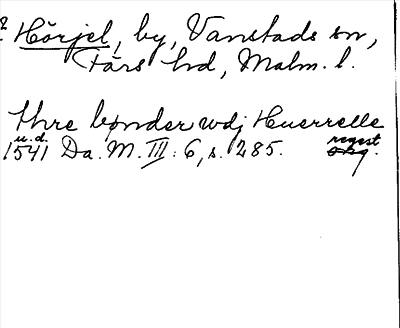 Hörjel, by, Vanstads sn,
Färs hd, Malm. l.
thre bønder wdj Huerrelle
u.d. regest
1541 Da. M. III: 6, s. 285. orig.